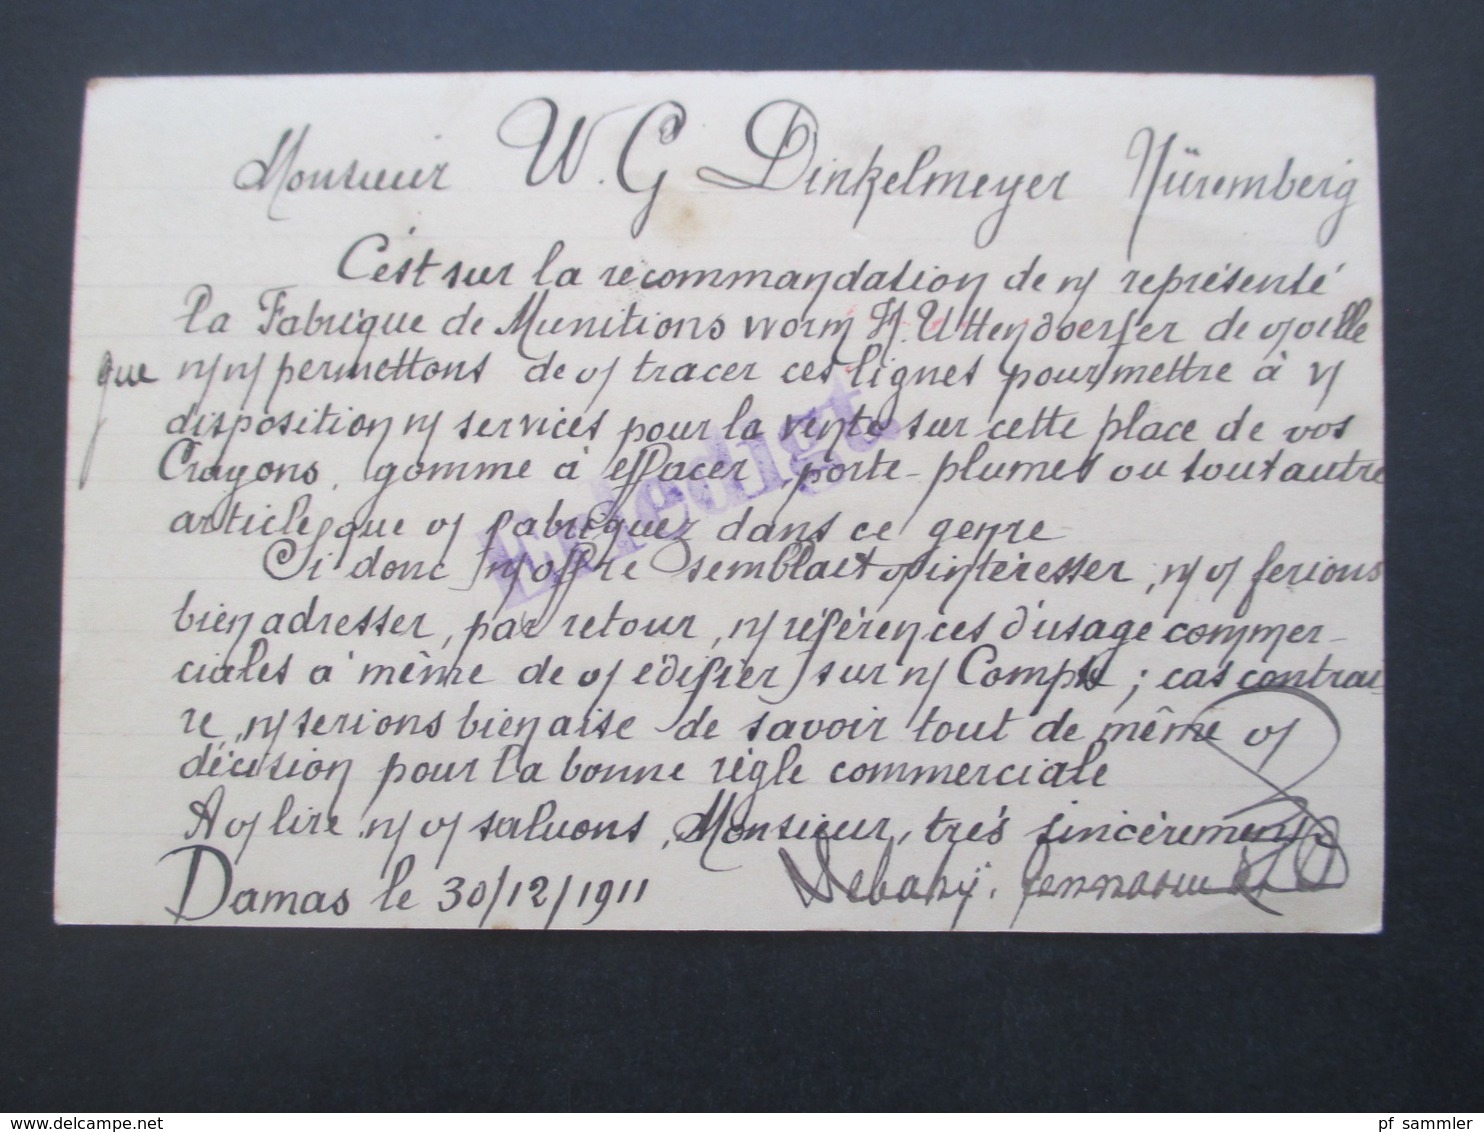 Monsieur W. G Dinkelmeyer Nüremberg
C'est sur la recommandation de n/ représenté
la Fabrique de Munitions vorm H. Uttendoerfer de v/ville
que n/ n/ permettons de v/ tracer ces lignes pour mettre à v/
disposition n/ services pour la vente sur cette place de vos
Crayons, gomme à effacer, porte-plumes ou tout autre
article que v/ fabriquez dans ce genre
Si donc n/ offre semblait v/ intéresser, n/ v/ ferions
bien adresser, par retour, n/ références d'usage commer-
ciales à même de v/ édifier sur n/ Compte; cas contrai-
re, n/ serions bien aise de savoir tout de même v/
décision pour la bonne règle commerciale
A v/ lire, n/ v/ saluons, Monsieur, très sincèrement
Damas le 30/12/1911
Erledigt
delcampe.net
pf_sammler